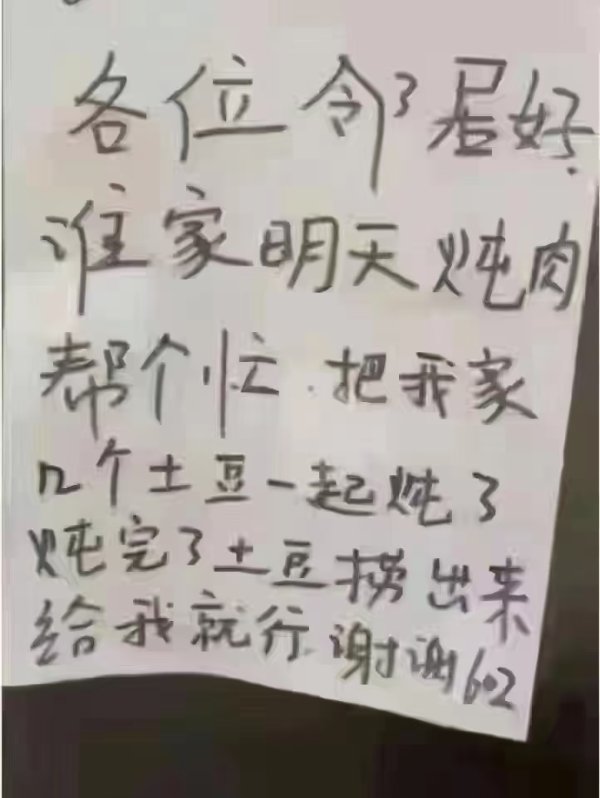 各位邻居好.
谁家明天炖肉
帮个忙.把我家
几个土豆一起炖了
炖完了土豆捞出来
给我就行.谢谢602